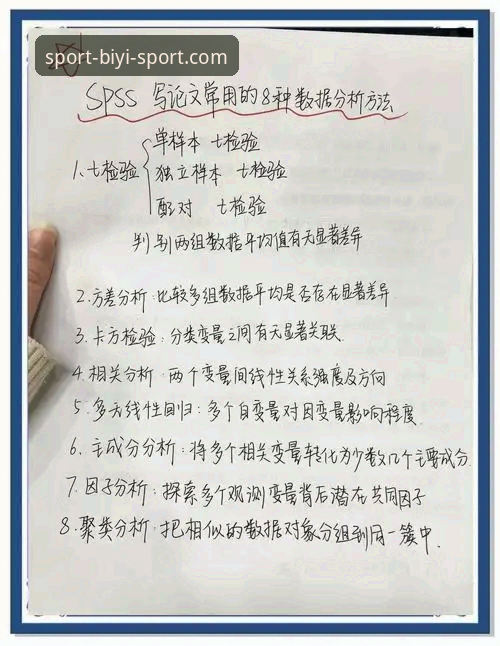 sport-biyi-sport.com
SPSS 写论文常用的8种数据分析方法
单样本 t检验
1. t检验 独立样本 t检验
配对 t检验
判别两组数据平均值有无显著差异
2.方差分析:比较多组数据平均是否存在显著差异
3.卡方检验:分类变量之间有无显著关联.
4.相关分析:两个变量间线性关系强度及方向
5.多元线性回归:多个自变量对因变量影响程度.
6.主成分分析:将多个相关变量转化为少数几个主要成分.
7.因子分析:探索多个观测变量背后潜在共同因子
8.聚类分析:把相似的数据对象分组到同一簇中.